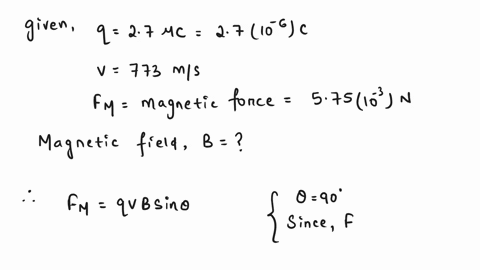 given, q = 2.7 μC = 2.7 (10⁻⁶) C
v = 773 m/s
F_M = magnetic force = 5.75 (10⁻³) N
Magnetic field, B = ?
∴ F_M = qvB sinθ { θ = 90°
Since, F